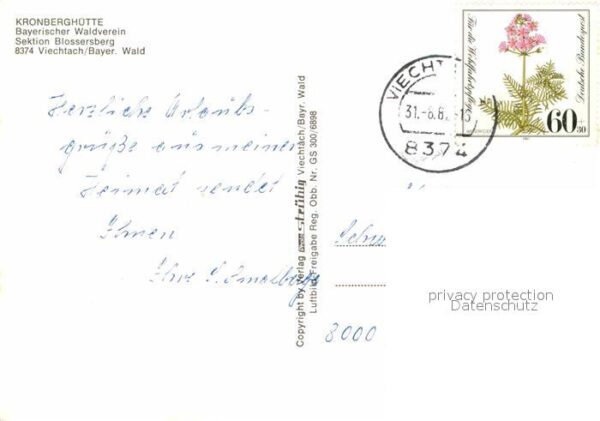 KRONBERGHÜTTE
Bayerischer Waldverein
Sektion Blossersberg
8374 Viechtach/Bayer. Wald
Herzliche Urlaubs-
grüße aus meiner
Heimat sendet
Ihnen
Copyright by Verlag Viechtach/Bayr. Wald
Luftbild Freigabe Reg. Obb. Nr. GS 300/6898
VIECHT
31.-8.8
8374
Für die Wohlfahrtspflege
Deutsche Bundespost
60
+30
8000
privacy protection
Datenschutz